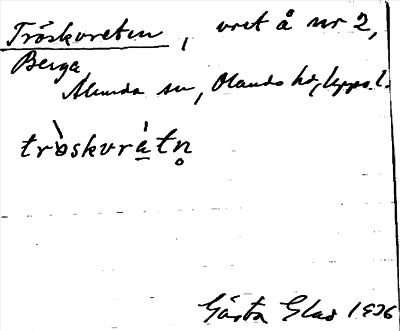 Tröskvreten, vret å nr 2,
Berga
Alunda sn, Olands hd, Upps. l.
tròskvràtn̥
Gösta Glas 1936